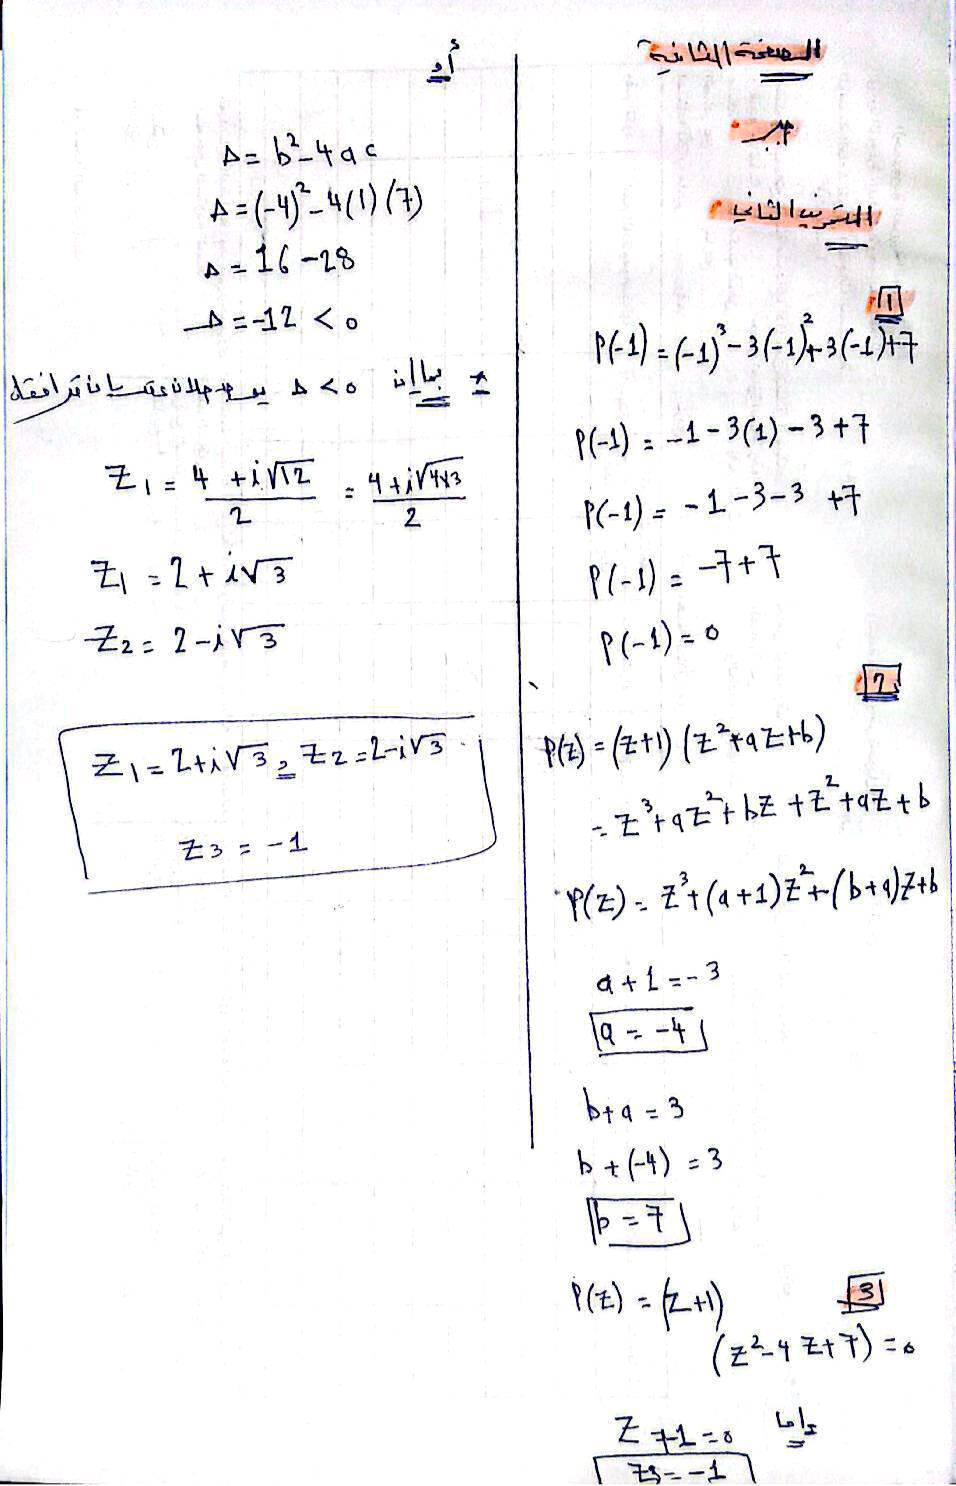 الصفحة الثانية
التمرين الثاني
1
P(-1) = (-1)³ - 3(-1)² + 3(-1) + 7
P(-1) = -1 - 3(1) - 3 + 7
P(-1) = -1 - 3 - 3 + 7
P(-1) = -7 + 7
P(-1) = 0
2
P(z) = (z+1) (z² + az + b)
= z³ + az² + bz + z² + az + b
P(z) = z³ + (a+1)z² + (b+a)z + b
a + 1 = -3
a = -4
b + a = 3
b + (-4) = 3
b = 7
3
P(z) = (z+1)
(z² - 4z + 7) = 0
إما
z + 1 = 0
z3 = -1
أو
Δ = b² - 4ac
Δ = (-4)² - 4(1)(7)
Δ = 16 - 28
Δ = -12 < 0
بما أن Δ < 0 يوجد حلان مترافقان
z1 = (4 + i√12)/2 = (4 + i√4×3)/2
z1 = 2 + i√3
z2 = 2 - i√3
z1 = 2 + i√3 , z2 = 2 - i√3
z3 = -1